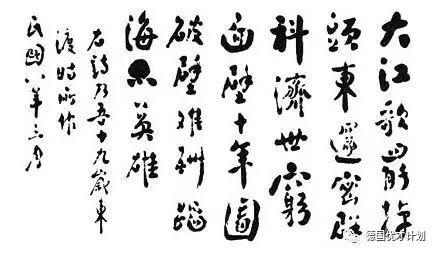 大江歌罷掉
頭東邃密群
科濟世窮
面壁十年圖
破壁難酬蹈
海亦英雄
右詩乃吾十九歲東
渡時所作
民國八年三月
德国优才计划